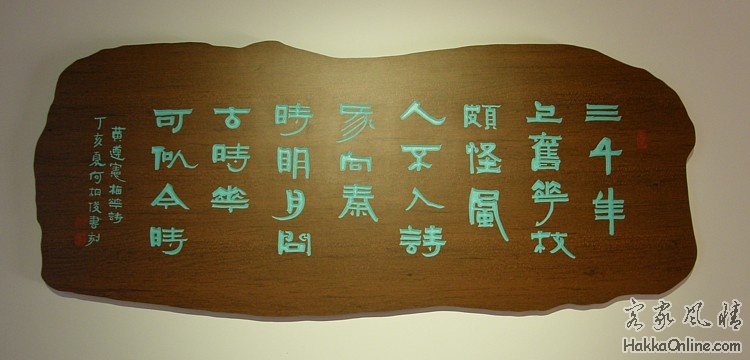 三千年
上舊華枝
頗怪風
人不入詩
我向秦
時明月問
古時華
可似今時
黃遵憲梅華詩
丁亥夏何俊書刻
客家風情
HakkaOnline.com